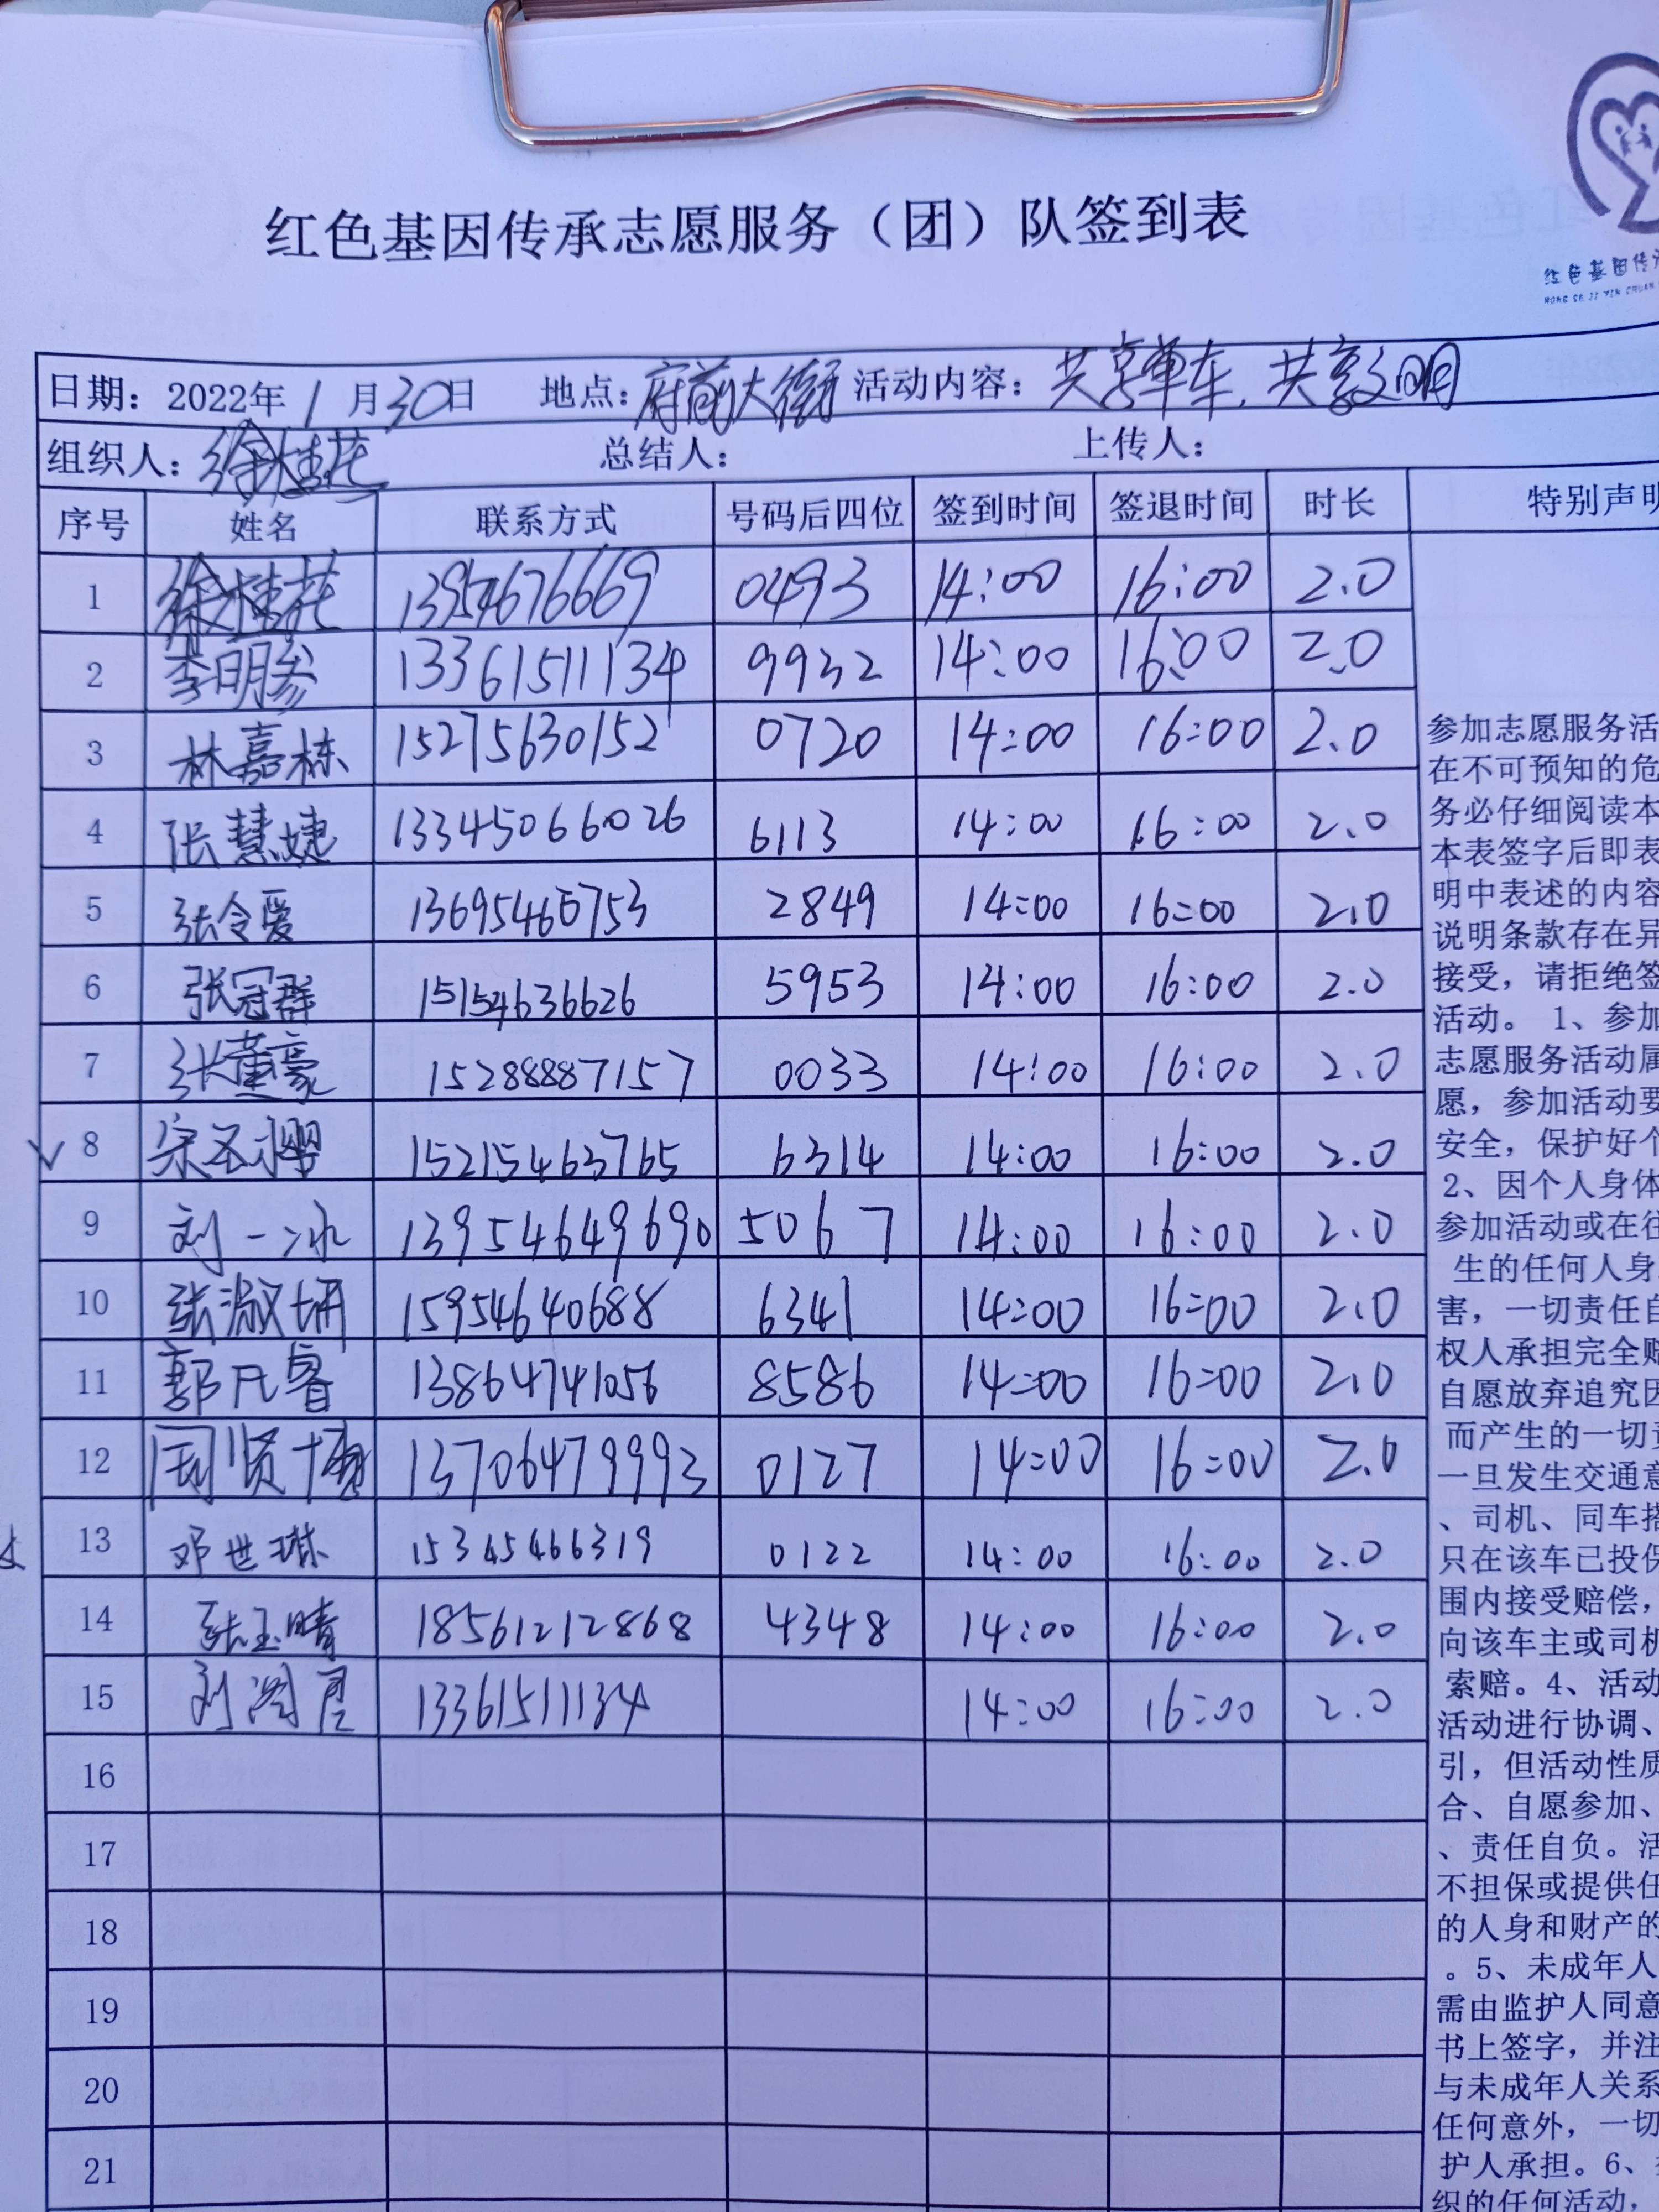 红色基因传承志愿服务（团）队签到表
红色基因传
HONG SE JI YIN CHUAN
日期：2022年1月30日 地点：府前大街 活动内容：共享单车，共享文明
组织人：徐桂花 总结人： 上传人：
序号 姓名 联系方式 号码后四位 签到时间 签退时间 时长 特别声明
1 徐桂花 13954676669 0493 14:00 16:00 2.0
2 李明参 13361511134 9932 14:00 16:00 2.0
3 林嘉栋 15275630152 0720 14:00 16:00 2.0
4 张慧婕 13345066026 6113 14:00 16:00 2.0
5 张令爱 13695460753 2849 14:00 16:00 2.0
6 张冠群 15154636626 5953 14:00 16:00 2.0
7 张董豪 15288887157 0033 14:00 16:00 2.0
8 宋圣樱 15215463765 6314 14:00 16:00 2.0
9 刘一冰 13954649690 5067 14:00 16:00 2.0
10 张淑妍 15954640688 6341 14:00 16:00 2.0
11 郭凡睿 13864741056 8586 14:00 16:00 2.0
12 周贤 13706479993 0127 14:00 16:00 2.0
13 邓世琳 15345466319 0122 14:00 16:00 2.0
14 张玉晴 18561212868 4348 14:00 16:00 2.0
15 刘 13361511134 14:00 16:00 2.0
16
17
18
19
20
21
参加志愿服务活
在不可预知的危
务必仔细阅读本
本表签字后即表
明中表述的内容
说明条款存在异
接受，请拒绝签
活动。 1、参加
志愿服务活动属
愿，参加活动要
安全，保护好个
2、因个人身体
参加活动或在往
生的任何人身
害，一切责任自
权人承担完全赔
自愿放弃追究因
而产生的一切责
一旦发生交通意
、司机、同车搭
只在该车已投保
围内接受赔偿，
向该车主或司机
索赔。4、活动
活动进行协调、
引，但活动性质
合、自愿参加、
、责任自负。活
不担保或提供任
的人身和财产的
。5、未成年人
需由监护人同意
书上签字，并注
与未成年人关系
任何意外，一切
护人承担。6、
织的任何活动，